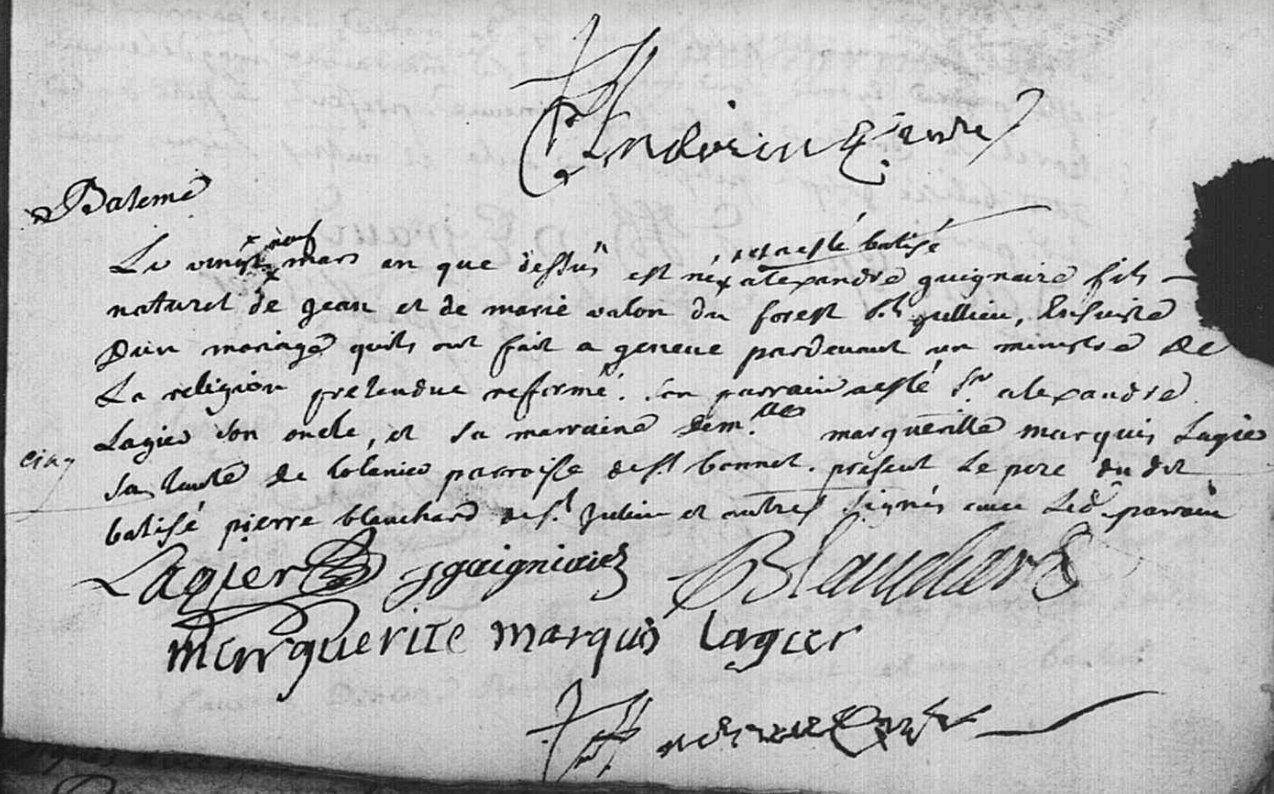 Bateme
Le vingt neuf mars an que dessus est né et a esté batisé alexandre guignaire fils
naturel de jean et de marie valon du forest st jullien, Ensuite
D'un mariage quils ont fait a geneve pardevant un ministre de
La religion pretendue reformé. son parrain a esté sr. alexandre
Lagier son oncle, et sa marraine demlle margueritte marquis Lagier
cinq
sa tante de parroisse de st bonnet. présent le pere du dit
batisé pierre blanchard de st Julien et autres signés avec led parrain
Lagier Jguigniaire Blanchard
marguerite marquis Lagier